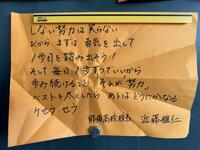 しない努力は実らない
だから まずは 勇気を出して
1歩目を踏み出そう！
そして 毎日 1歩ずつでいいから
歩み続けること それが"努力"
ベストを尽くしたら あとはどうにかなる
ケセラ セラ
高校校長 近藤